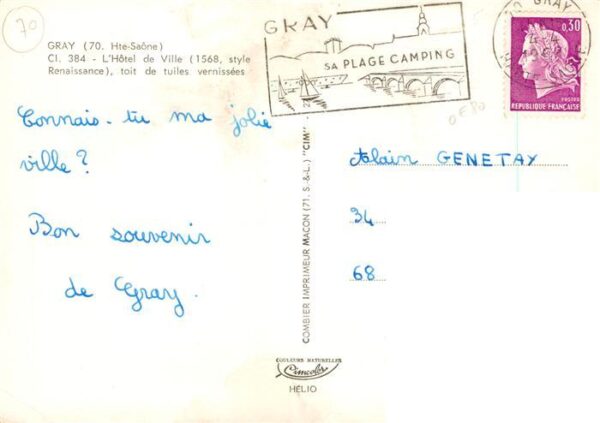 70
GRAY (70. Hte-Saône)
Cl. 384 - L'Hôtel de Ville (1568, style
Renaissance), toit de tuiles vernissées
GRAY
SA PLAGE CAMPING
GRAY
0,30
POSTES
REPUBLIQUE FRANÇAISE
Connais-tu ma jolie
ville ?
Bon souvenir
de Gray.
COMBIER IMPRIMEUR MACON (71. S.-&-L.) "CIM"
Alain GENETAY
34
68
COULEURS NATURELLES
Cimcolor
HÉLIO